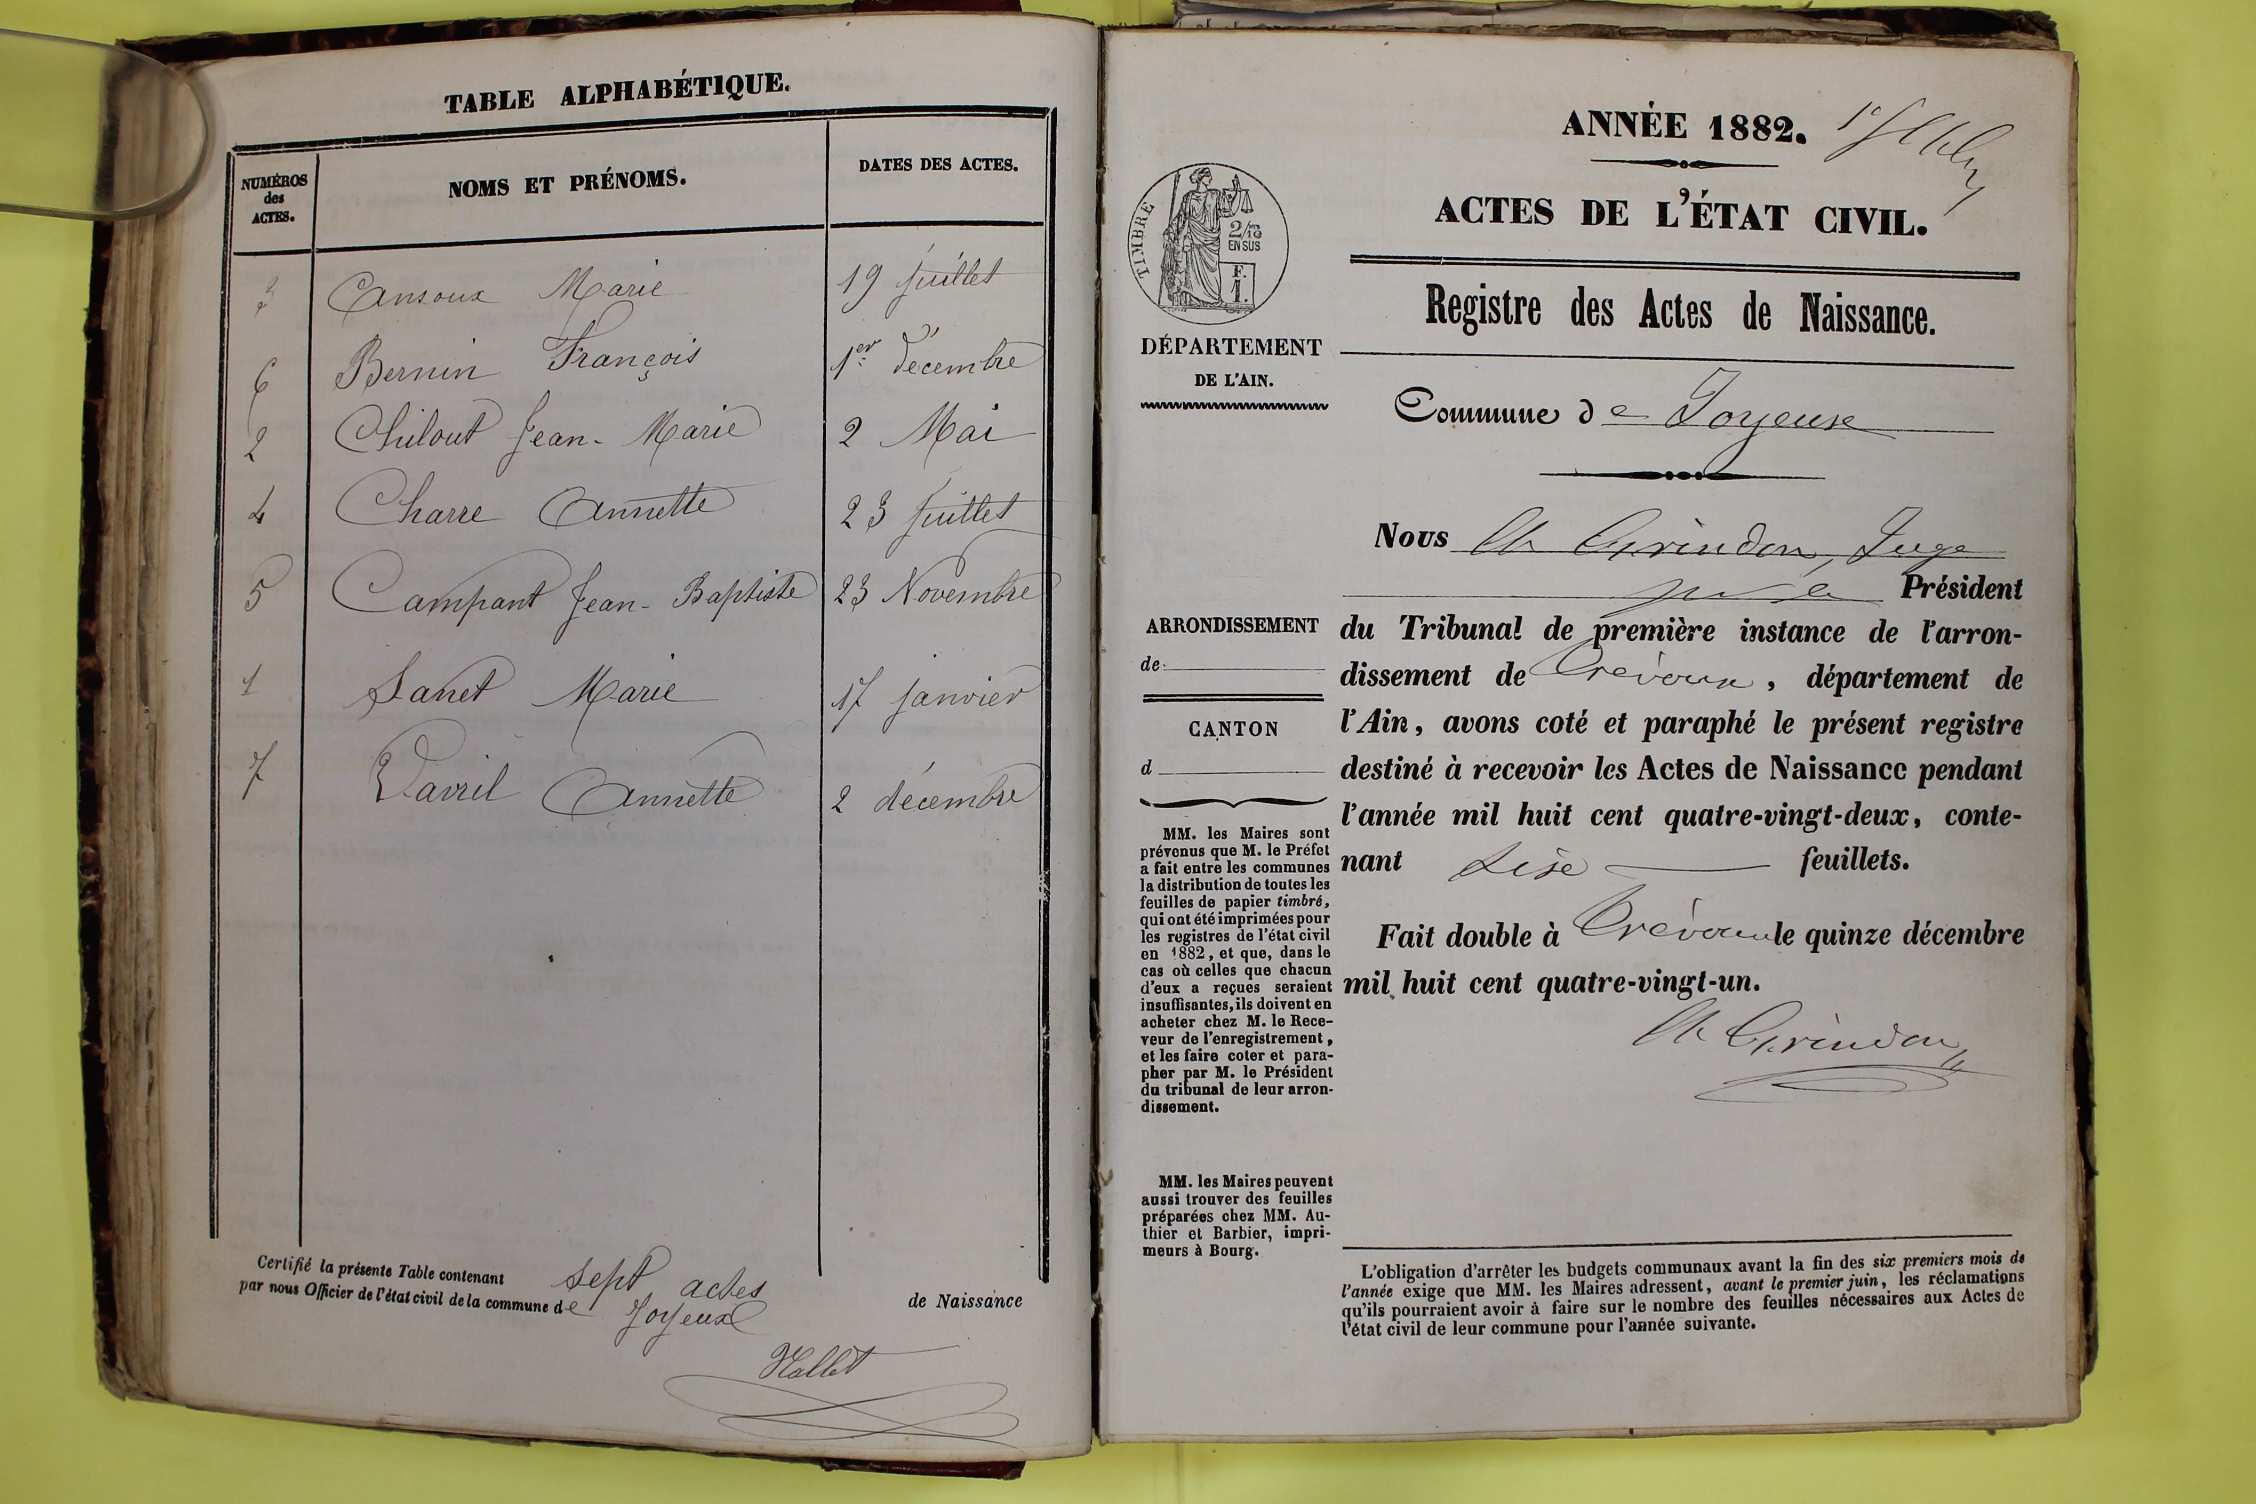 TABLE ALPHABÉTIQUE.
NUMÉROS des ACTES.
NOMS ET PRÉNOMS.
DATES DES ACTES.
3 Ansoux Marie 19 juillet
6 Bernin François 1er décembre
2 Chilout Jean-Marie 2 Mai
4 Charre Annette 23 juillet
5 Campant Jean-Baptiste 23 Novembre
1 Janet Marie 17 janvier
7 Vavril Annette 2 décembre
Certifié la présente Table contenant sept actes de Naissance
par nous Officier de l'état civil de la commune de Joyeux
ANNÉE 1882.
ACTES DE L'ÉTAT CIVIL.
TIMBRE
2/10
EN SUS
F.
1.
Registre des Actes de Naissance.
DÉPARTEMENT
DE L'AIN.
Commune de Joyeux
Nous Girindon, Juge
Président
du Tribunal de première instance de l'arron-
dissement de Trévoux, département de
l'Ain, avons coté et paraphé le présent registre
destiné à recevoir les Actes de Naissance pendant
l'année mil huit cent quatre-vingt-deux, conte-
nant feuillets.
Fait double à Trévoux le quinze décembre
mil huit cent quatre-vingt-un.
Girindon
ARRONDISSEMENT
de
CANTON
d
MM. les Maires sont
prévenus que M. le Préfet
a fait entre les communes
la distribution de toutes les
feuilles de papier timbré,
qui ont été imprimées pour
les registres de l'état civil
en 1882, et que, dans le
cas où celles que chacun
d'eux a reçues seraient
insuffisantes, ils doivent en
acheter chez M. le Rece-
veur de l'enregistrement,
et les faire coter et para-
pher par M. le Président
du tribunal de leur arron-
dissement.
MM. les Maires peuvent
aussi trouver des feuilles
préparées chez MM. Au-
thier et Barbier, impri-
meurs à Bourg.
L'obligation d'arrêter les budgets communaux avant la fin des six premiers mois de
l'année exige que MM. les Maires adressent, avant le premier juin, les réclamations
qu'ils pourraient avoir à faire sur le nombre des feuilles nécessaires aux Actes de
l'état civil de leur commune pour l'année suivante.